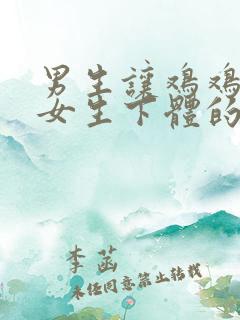 男生讓鸡鸡
女生下體的
李菡
未经同意禁止转载